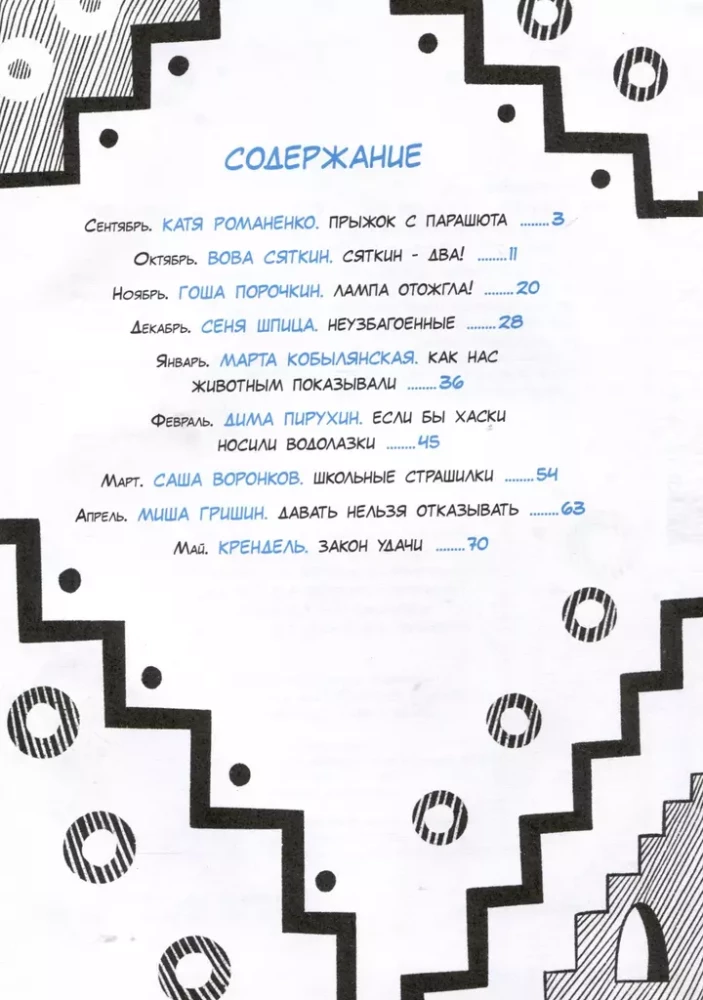 СОДЕРЖАНИЕ
Сентябрь. КАТЯ РОМАНЕНКО. ПРЫЖОК С ПАРАШЮТА ........3
Октябрь. ВОВА СЯТКИН. СЯТКИН - ДВА! ........11
Ноябрь. ГОША ПОРОЧКИН. ЛАМПА ОТОЖГЛА! ........20
Декабрь. СЕНЯ ШПИЦА. НЕУЗБАГОЕННЫЕ ........28
Январь. МАРТА КОБЫЛЯНСКАЯ. КАК НАС
ЖИВОТНЫМ ПОКАЗЫВАЛИ ........36
Февраль. ДИМА ПИРУХИН. ЕСЛИ БЫ ХАСКИ
НОСИЛИ ВОДОЛАЗКИ ........45
Март. САША ВОРОНКОВ. ШКОЛЬНЫЕ СТРАШИЛКИ ........54
Апрель. МИША ГРИШИН. ДАВАТЬ НЕЛЬЗЯ ОТКАЗЫВАТЬ ........63
Май. КРЕНДЕЛЬ. ЗАКОН УДАЧИ ........70